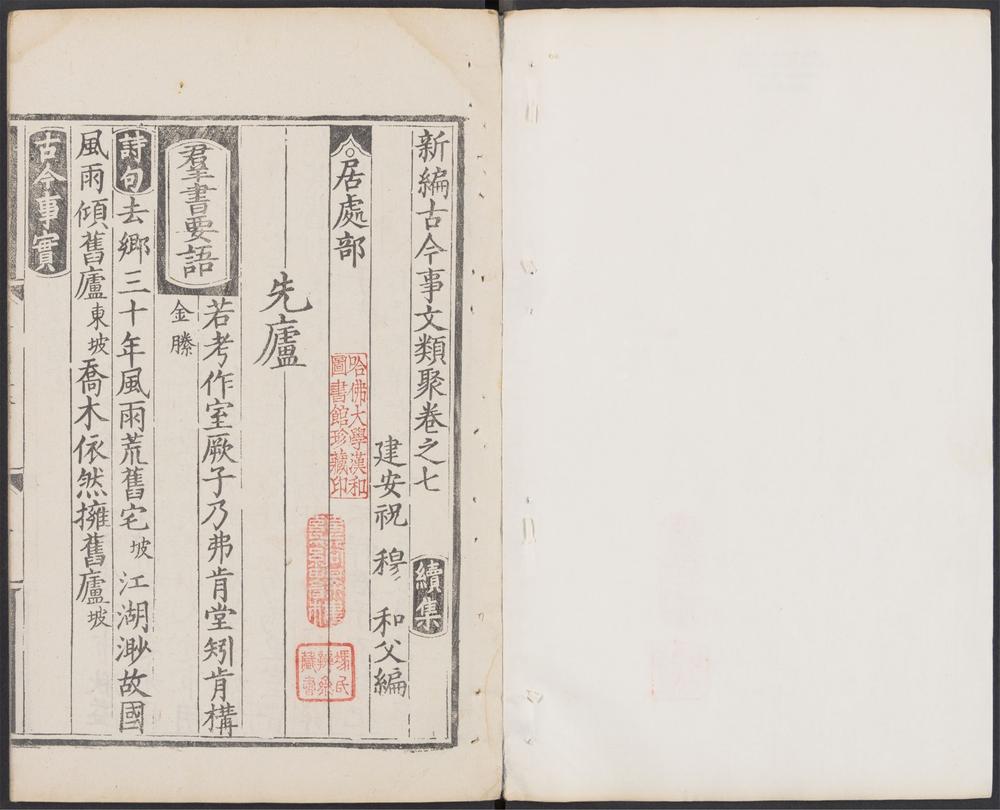 新編古今事文類聚卷之七 續集
建安祝 穆 和父編
居處部
哈佛大學漢和
圖書館珍藏印
先廬
羣書要語 若考作室厥子乃弗肯堂矧肯構
金縢
詩句 去鄉三十年風雨荒舊宅坡 江湖渺故國
風雨傾舊廬東坡 喬木依然擁舊廬坡
古今事實